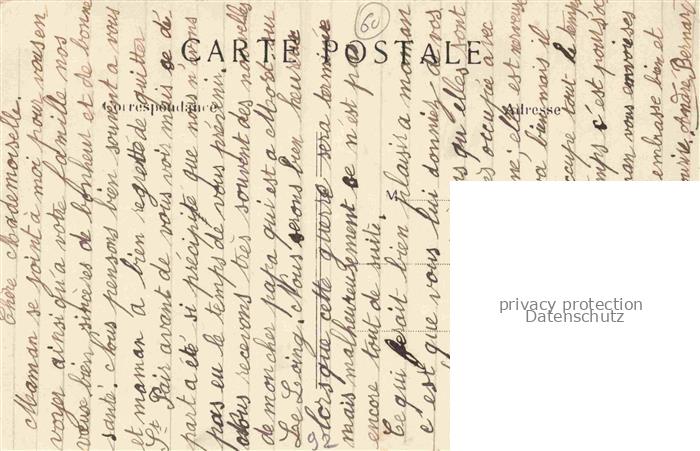 60
CARTE POSTALE
Correspondance
Adresse
Chère Mademoiselle.
Maman se joint à moi pour vous en
voyer ainsi qu'à votre famille nos
vœux bien sincères de bonheur et de bonne
santé. Nous pensons bien souvent a vous
et maman a bien regretté de quitter
St Pair avant de vous voir mais ce dé
part a été si précipité que nous n'avons
pas eu le temps de vous prévenir.
Nous recevons très souvent des nouvelles
de mon cher papa qui est a Moret
Le Loing. Nous serons bien heureux
lorsque cette guerre sera terminée
mais malheureusement ce n'est pas
encore tout de suite.
Ce qui ferait bien plaisir a maman
c'est que vous lui donniez de vos
qu'elles sont
occupé avec
elle est nerveuse
va bien mais il
occupe tout le temps
temps c'est pourquoi
maman vous envoie ses
embrasse bien et
92
privacy protection
Datenschutz